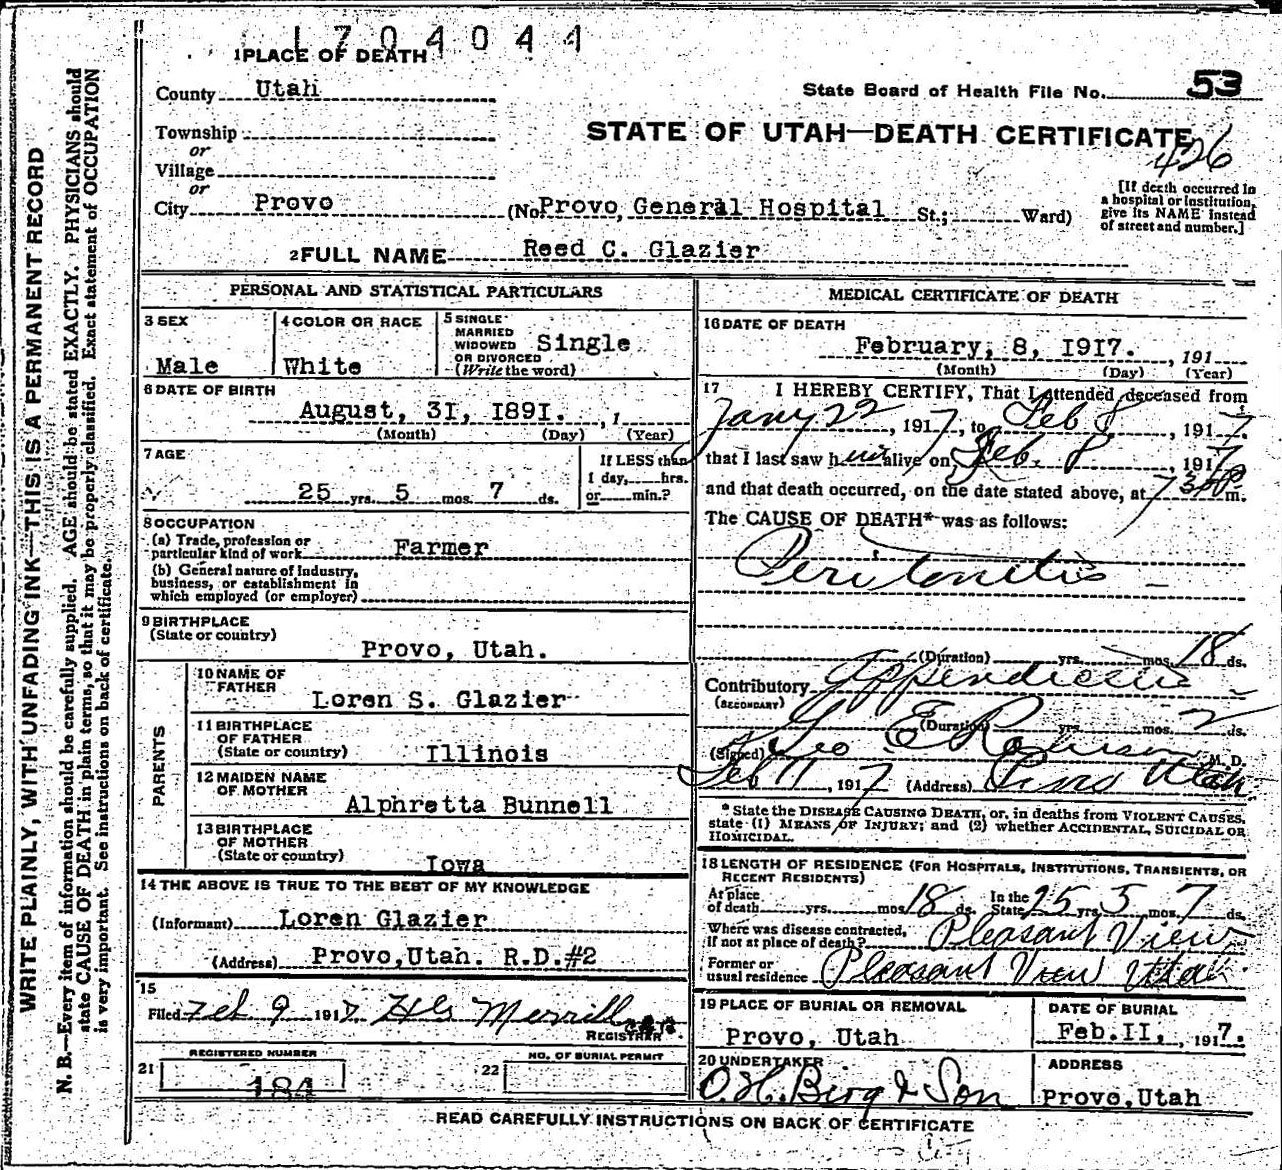 1704044
1 PLACE OF DEATH
County Utah
State Board of Health File No. 53
Township
or
STATE OF UTAH—DEATH CERTIFICATE
426
Village
or
City Provo (No. Provo General Hospital St.; Ward)
[If death occurred in
a hospital or institution,
give its NAME instead
of street and number.]
2 FULL NAME Reed C. Glazier
PERSONAL AND STATISTICAL PARTICULARS
3 SEX
Male
4 COLOR OR RACE
White
5 SINGLE
MARRIED
WIDOWED
OR DIVORCED
(Write the word)
Single
6 DATE OF BIRTH
August, 31, 1891. , 1
(Month) (Day) (Year)
7 AGE
25 yrs. 5 mos. 7 ds.
If LESS than
1 day, hrs.
or min.?
8 OCCUPATION
(a) Trade, profession or
particular kind of work Farmer
(b) General nature of industry,
business, or establishment in
which employed (or employer)
9 BIRTHPLACE
(State or country)
Provo, Utah.
PARENTS
10 NAME OF
FATHER
Loren S. Glazier
11 BIRTHPLACE
OF FATHER
(State or country) Illinois
12 MAIDEN NAME
OF MOTHER
Alphretta Bunnell
13 BIRTHPLACE
OF MOTHER
(State or country)
Iowa
14 THE ABOVE IS TRUE TO THE BEST OF MY KNOWLEDGE
(Informant) Loren Glazier
(Address) Provo, Utah. R.D.#2
15
Filed Feb 9 1917 Merrill
REGISTRAR
REGISTERED NUMBER
21 184
NO. OF BURIAL PERMIT
22
MEDICAL CERTIFICATE OF DEATH
16 DATE OF DEATH
February, 8, 1917. , 191
(Month) (Day) (Year)
17 I HEREBY CERTIFY, That I attended deceased from
Jany 22, 1917, to Feb 8, 1917.
that I last saw him alive on Feb. 8, 1917
and that death occurred, on the date stated above, at 7 30 P m.
The CAUSE OF DEATH* was as follows:
Peritonitis
(Duration) yrs. mos. 18 ds.
Contributory Appendicitis
(SECONDARY)
(Duration) yrs. mos. 2 ds.
(Signed) Geo E Robinson M. D.
Feb 11, 1917 (Address) Provo Utah
* State the DISEASE CAUSING DEATH, or, in deaths from VIOLENT CAUSES,
state (1) MEANS OF INJURY; and (2) whether ACCIDENTAL, SUICIDAL OR
HOMICIDAL.
18 LENGTH OF RESIDENCE (FOR HOSPITALS, INSTITUTIONS, TRANSIENTS, OR
RECENT RESIDENTS)
At place
of death yrs. mos. 18 ds. In the
State 25 yrs. 5 mos. 7 ds.
Where was disease contracted,
if not at place of death? Pleasant View
Former or
usual residence Pleasant View Utah
19 PLACE OF BURIAL OR REMOVAL
Provo, Utah
DATE OF BURIAL
Feb. 11, , 1917.
20 UNDERTAKER
O. H. Berg & Son
ADDRESS
Provo, Utah
READ CAREFULLY INSTRUCTIONS ON BACK OF CERTIFICATE
WRITE PLAINLY, WITH UNFADING INK—THIS IS A PERMANENT RECORD
N. B.—Every item of information should be carefully supplied. AGE should be stated EXACTLY. PHYSICIANS should
state CAUSE OF DEATH in plain terms, so that it may be properly classified. Exact statement of OCCUPATION
is very important. See instructions on back of certificate.